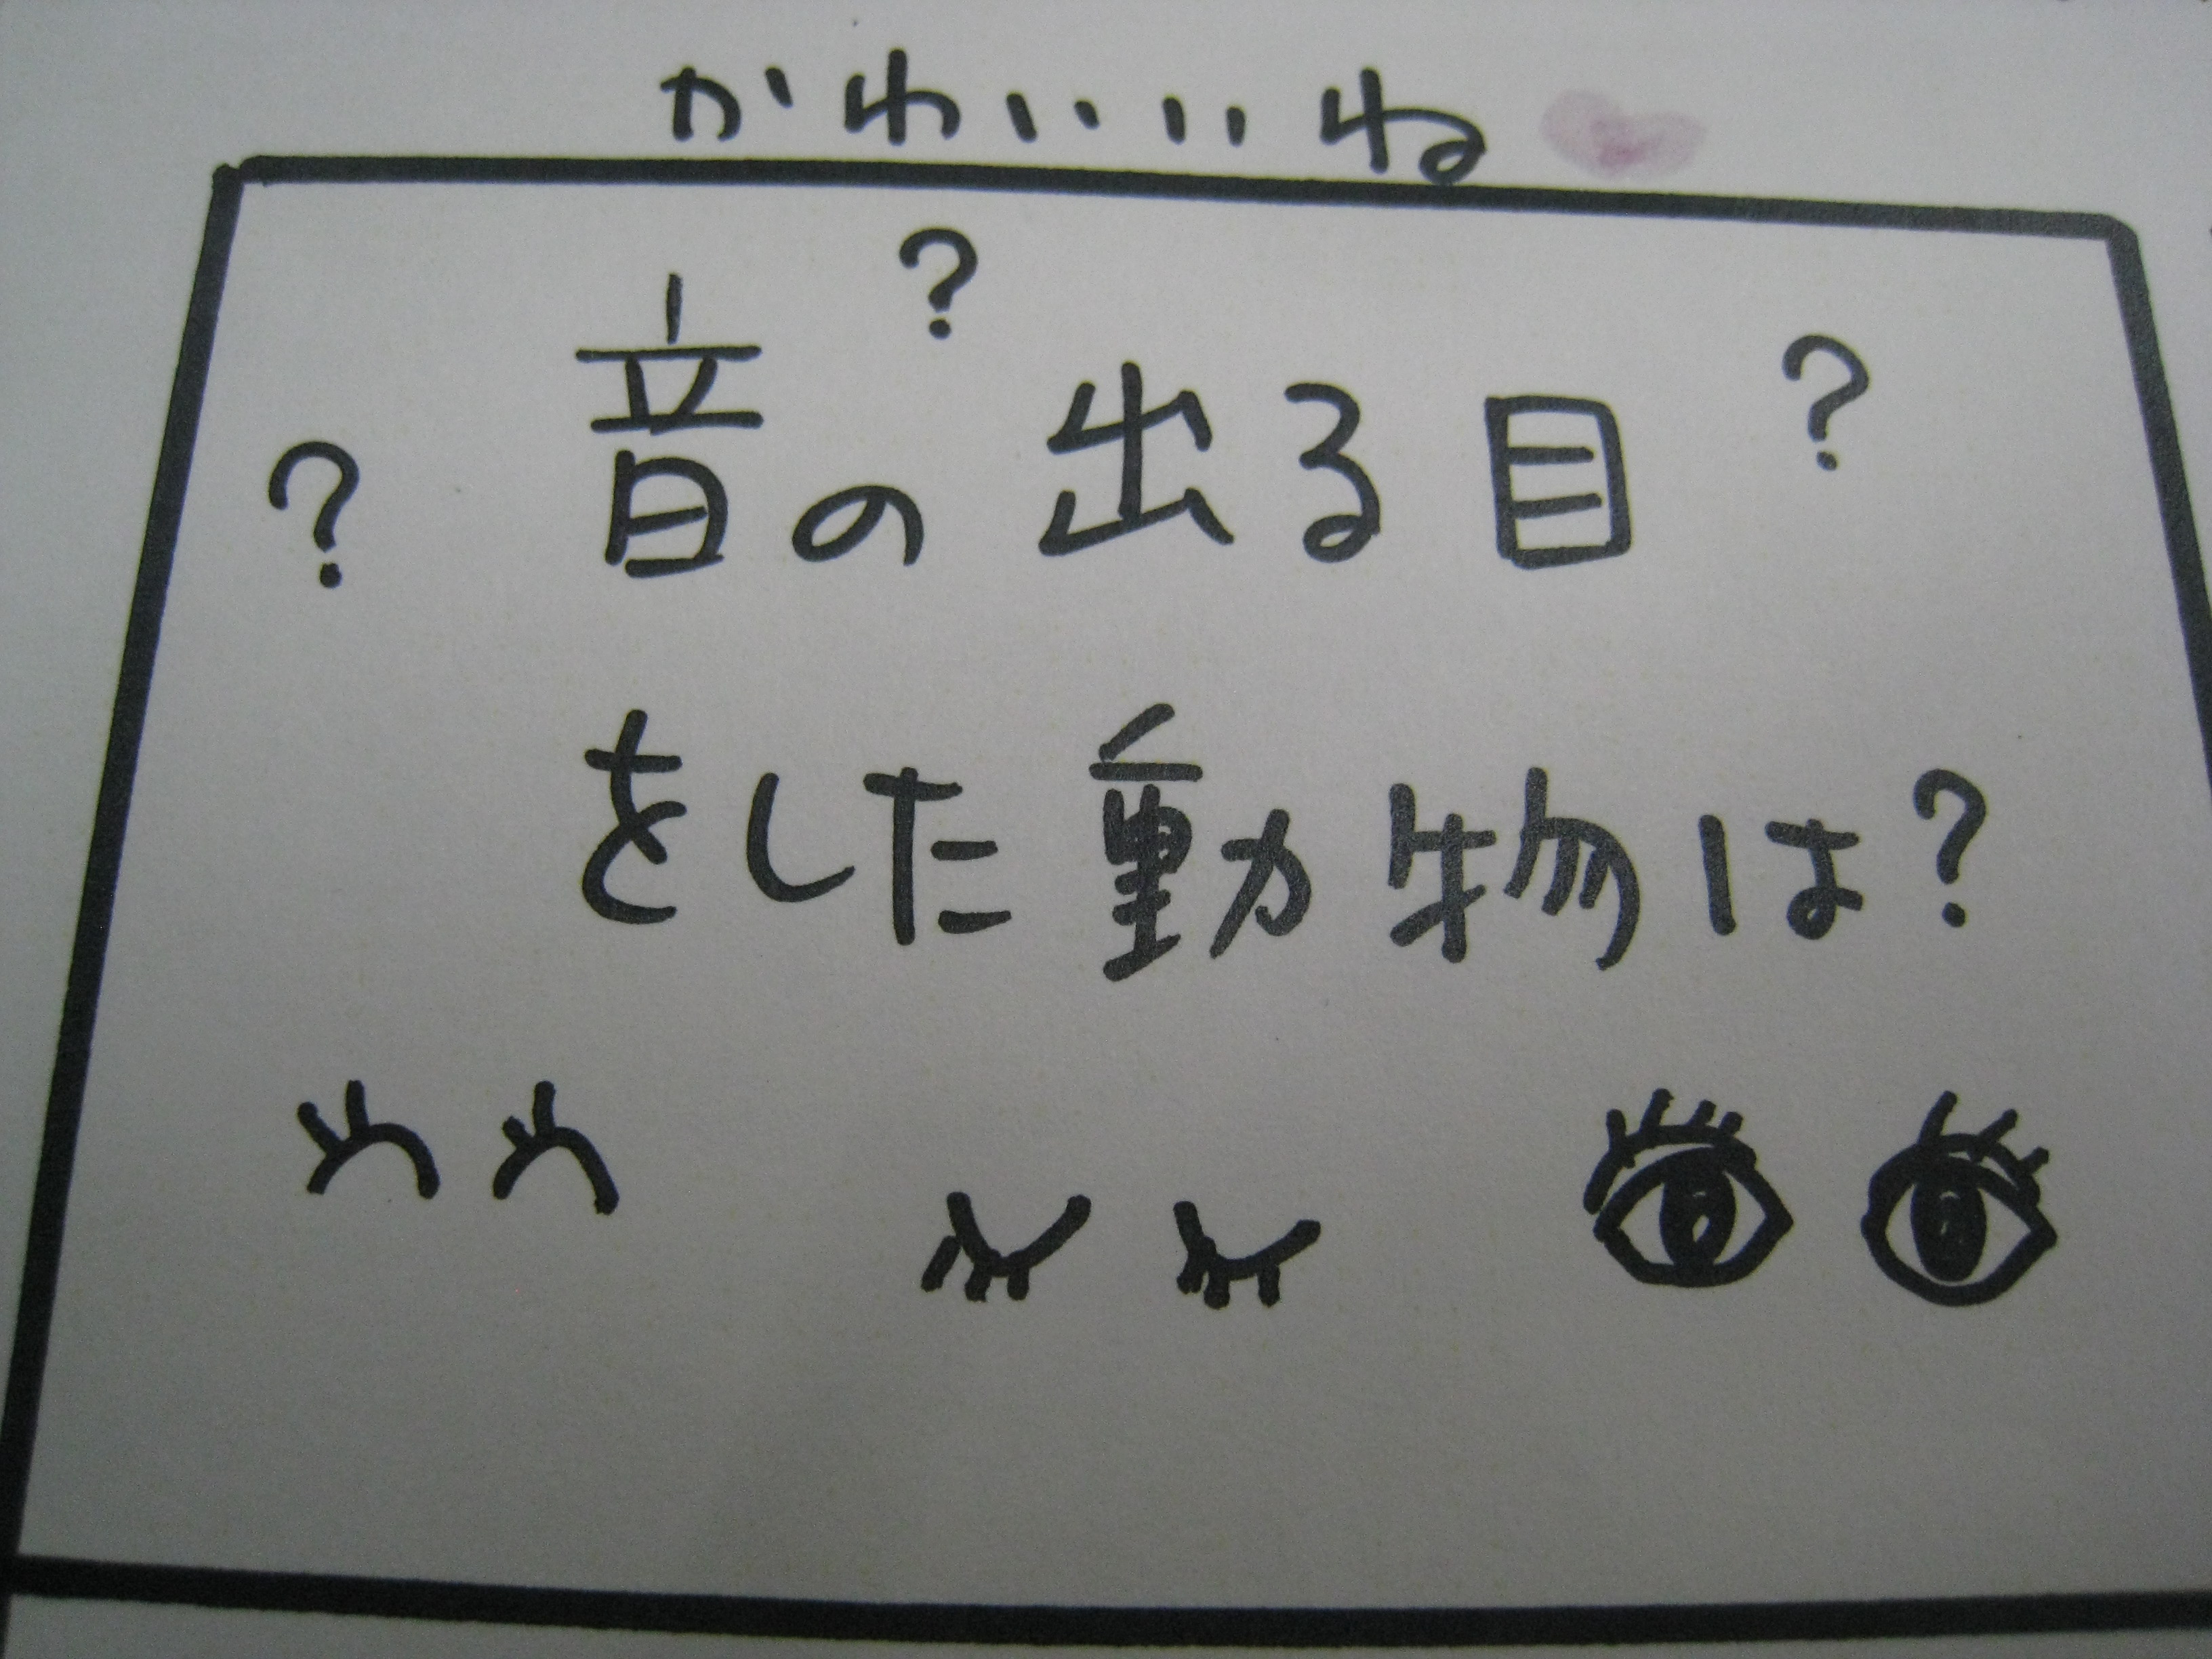 かわいいね
?
音の出る目
?
?
をした動物は?